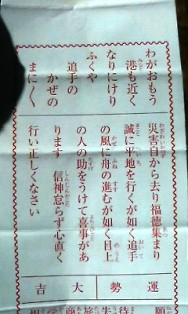 わがおもう
港も近く
なりにけり
ふくや
追手の
かぜの
まに〱
災害自から去り福徳集まり
誠に平地を行くが如く追手
の風に舟の進むが如く目上
の人の助をうけて喜事があ
ります 信神怠らず心直く
行い正しくなさい
運勢 大吉